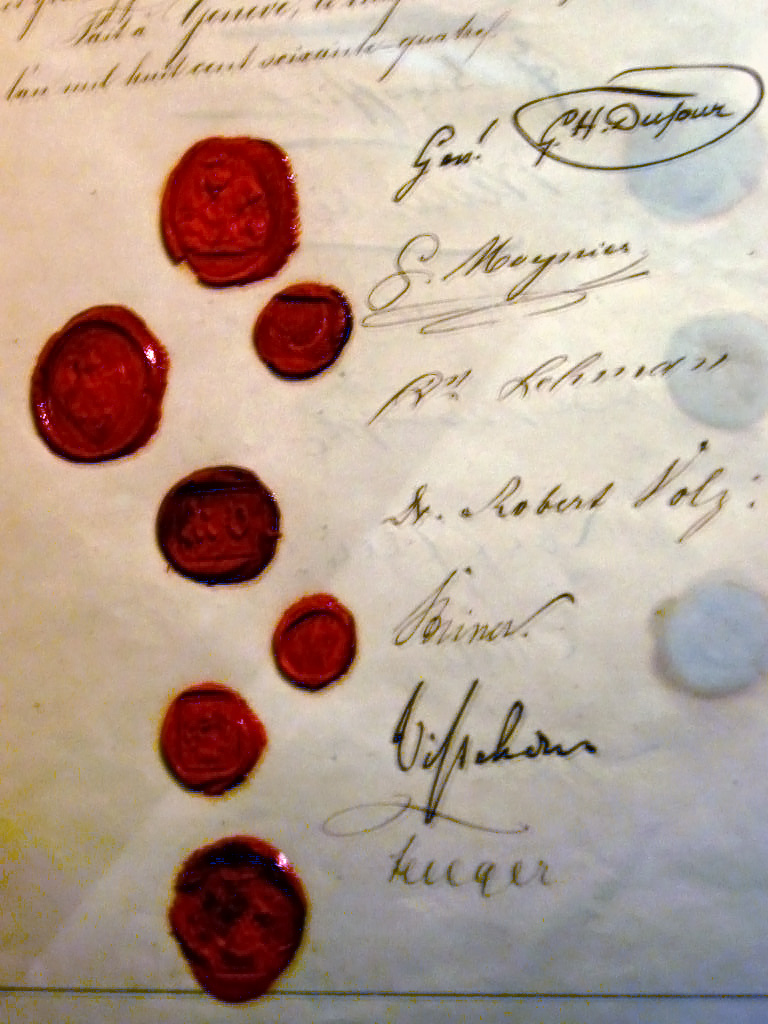 Fait à Genève, le
l'an mil huit cent soixante-quatre.
Genl G. H. Dufour
G. Moynier
Dr Lehmann
Dr. Robert Volz:
Steiner.
Visschers